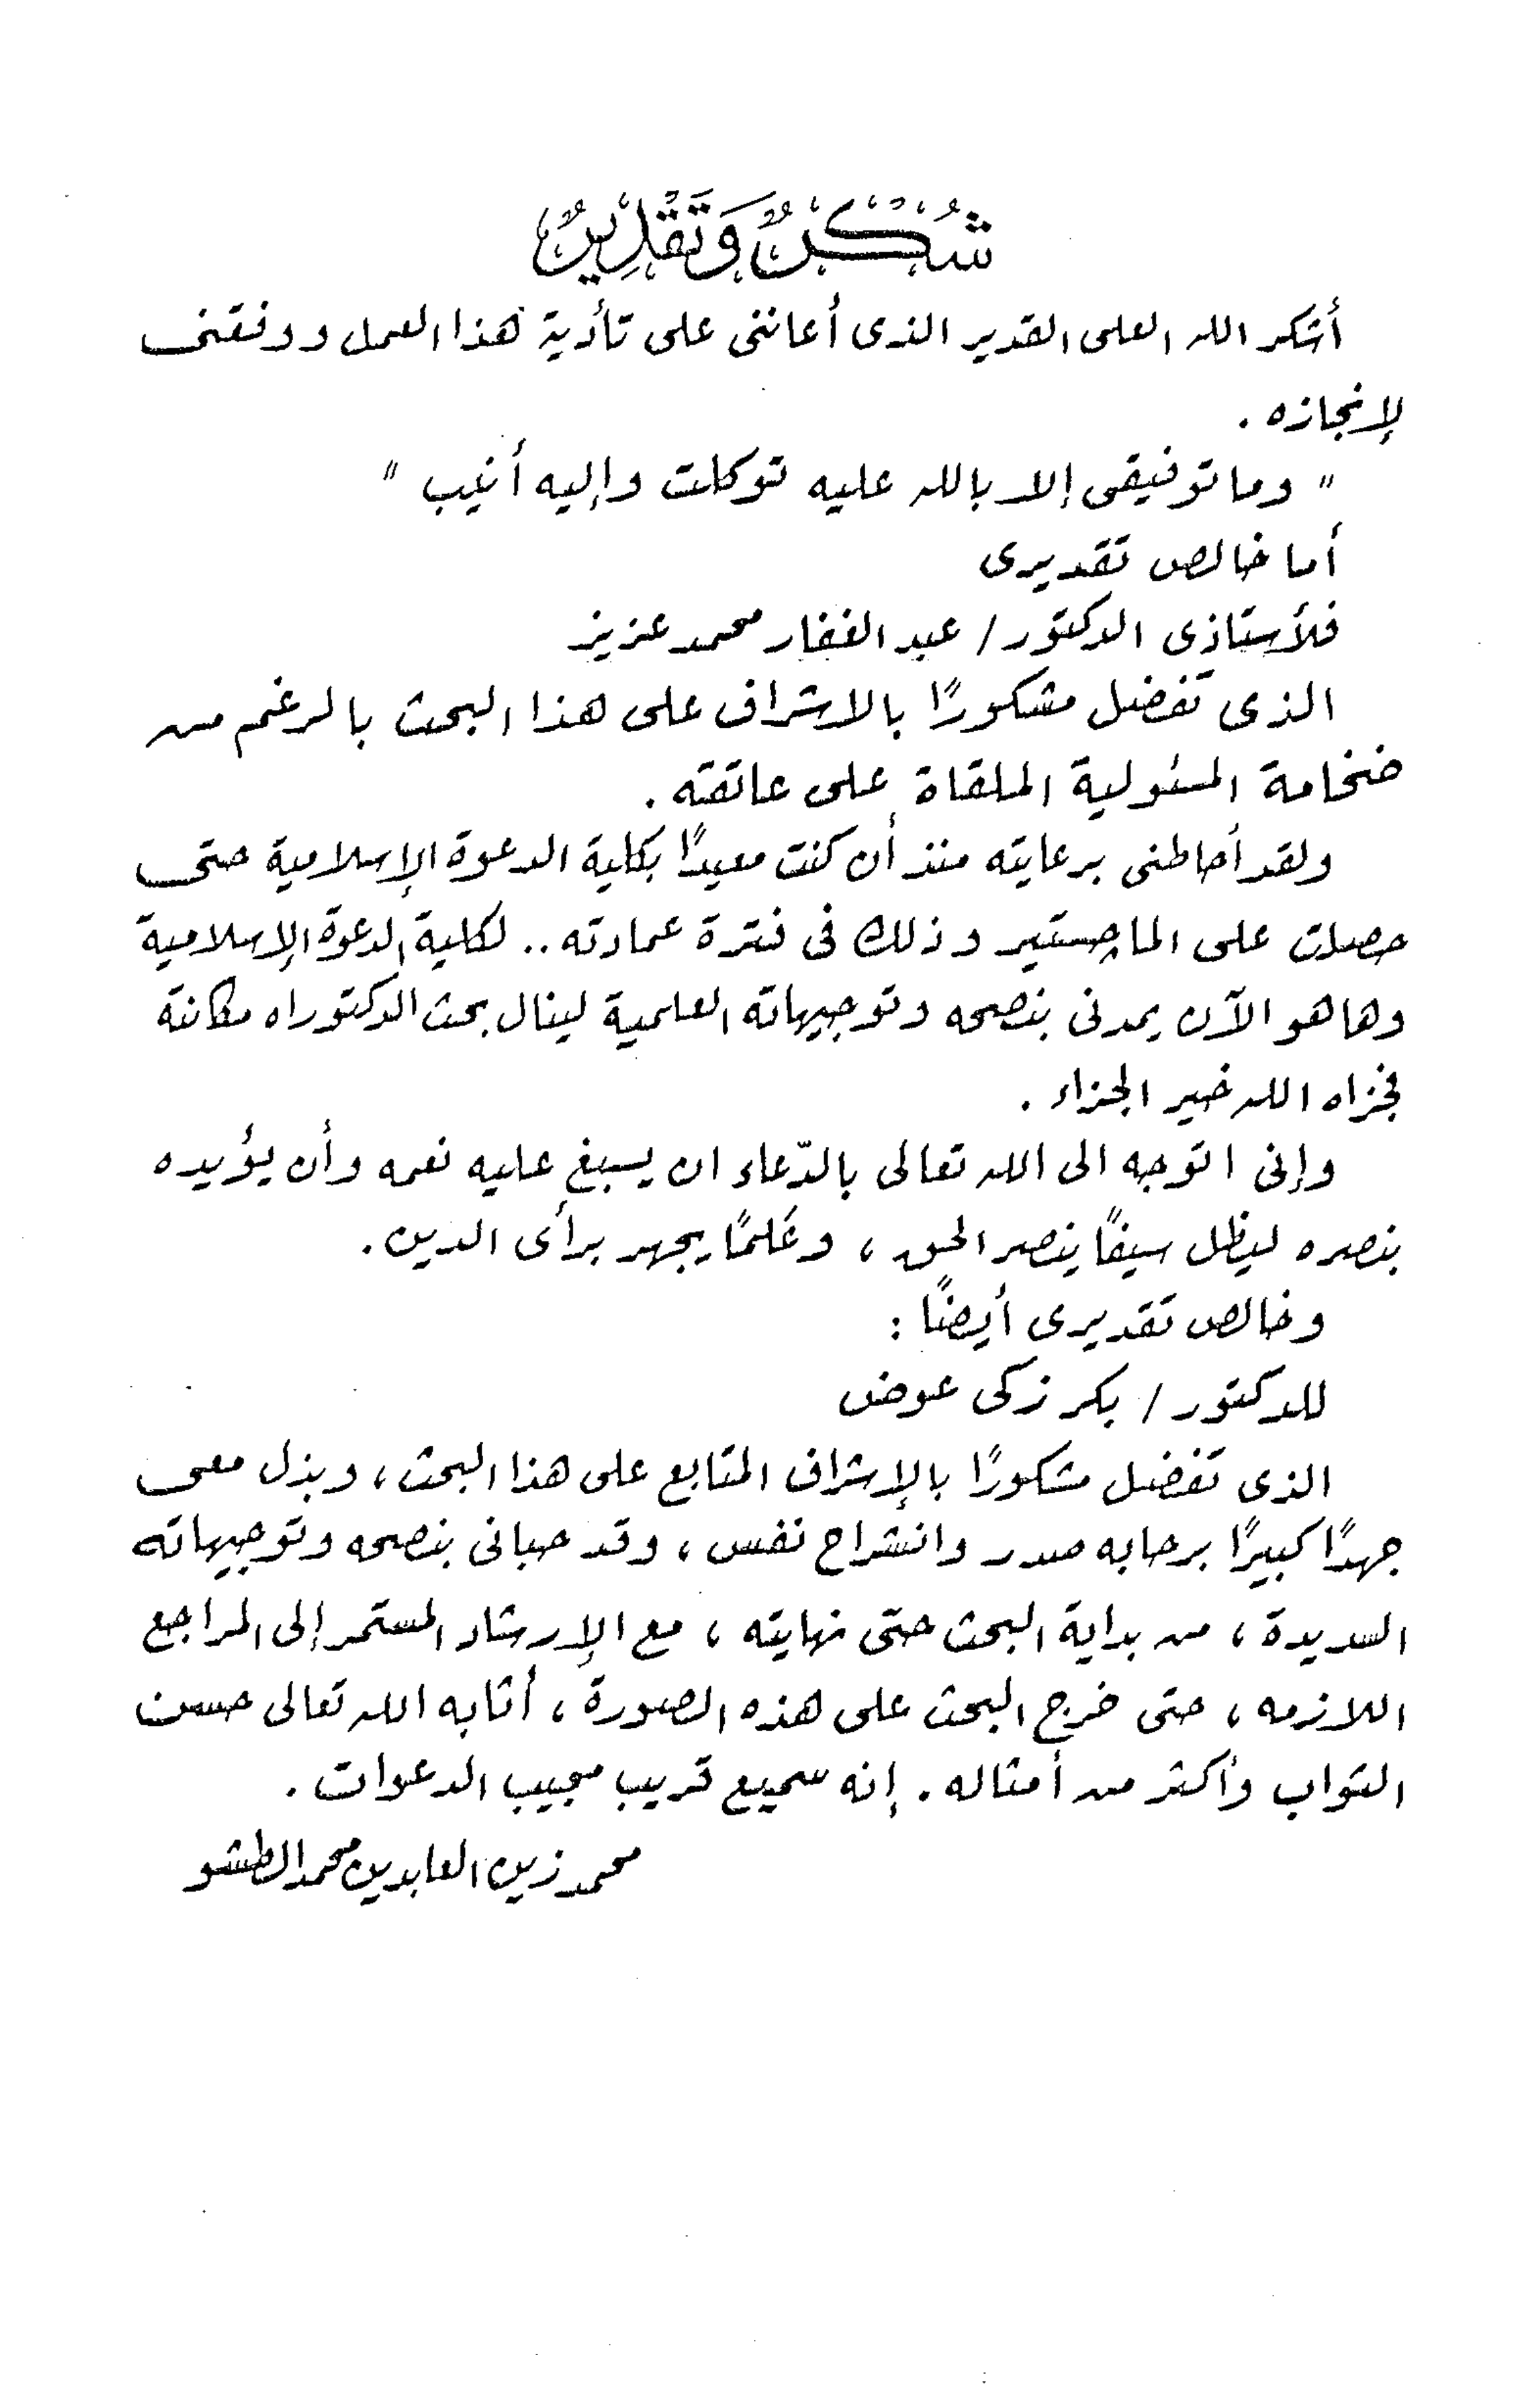 شُكْرٌ وَتَقْدِيرٌ
أشكر الله العلى القدير الذى أعاننى على تأدية هذا العمل ووفقنى
لإنجازه .
" وما توفيقى إلا بالله عليه توكلت وإليه أنيب "
أما خالص تقديرى
فلأستاذى الدكتور / عبد الغفار محمد عزيز
الذى تفضل مشكورًا بالاشراف على هذا البحث بالرغم من
ضخامة المسئولية الملقاة على عاتقته .
ولقد أحاطنى برعايته منذ أن كنت معيدًا بكلية الدعوة الإسلامية حتى
حصلت على الماجستير وذلك فى فترة عمادته .. لكلية الدعوة الإسلامية
وها هو الآن يمدنى بنصحه وتوجيهاته العلمية لينال بحث الدكتوراه مكانته
فجزاه الله خير الجزاء .
وإنى اتوجه الى الله تعالى بالدّعاء ان يسبغ عليه نعمه وأن يؤيده
بنصره ليظل سيفًا ينصر الحق ، وعَلمًا يجهر برأى الدين .
وخالص تقديرى أيضًا :
للدكتور / بكر زكى عوض
الذى تفضل مشكورًا بالإشراف المتابع على هذا البحث ، وبذل معى
جهدًا كبيرًا برحابه صدر وانشراح نفس ، وقد حبانى بنصحه وتوجيهاته
السديدة ، من بداية البحث حتى نهايته ، مع الإرشاد المستمر إلى المراجع
اللازمه ، حتى خرج البحث على هذه الصورة ، أثابه الله تعالى حسن
الثواب وأكثر من أمثاله . إنه سميع قريب مجيب الدعوات .
محمد زين العابدين محمد الطشو